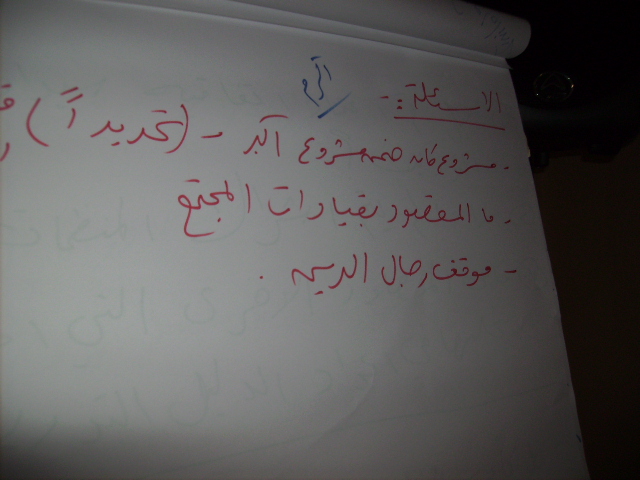 الاسئلة :-
- مشروع كان ضمن مشروع أكبر - (تحديداً)
- ما المقصود بقيادات المجتمع
- موقف رجال الدين .